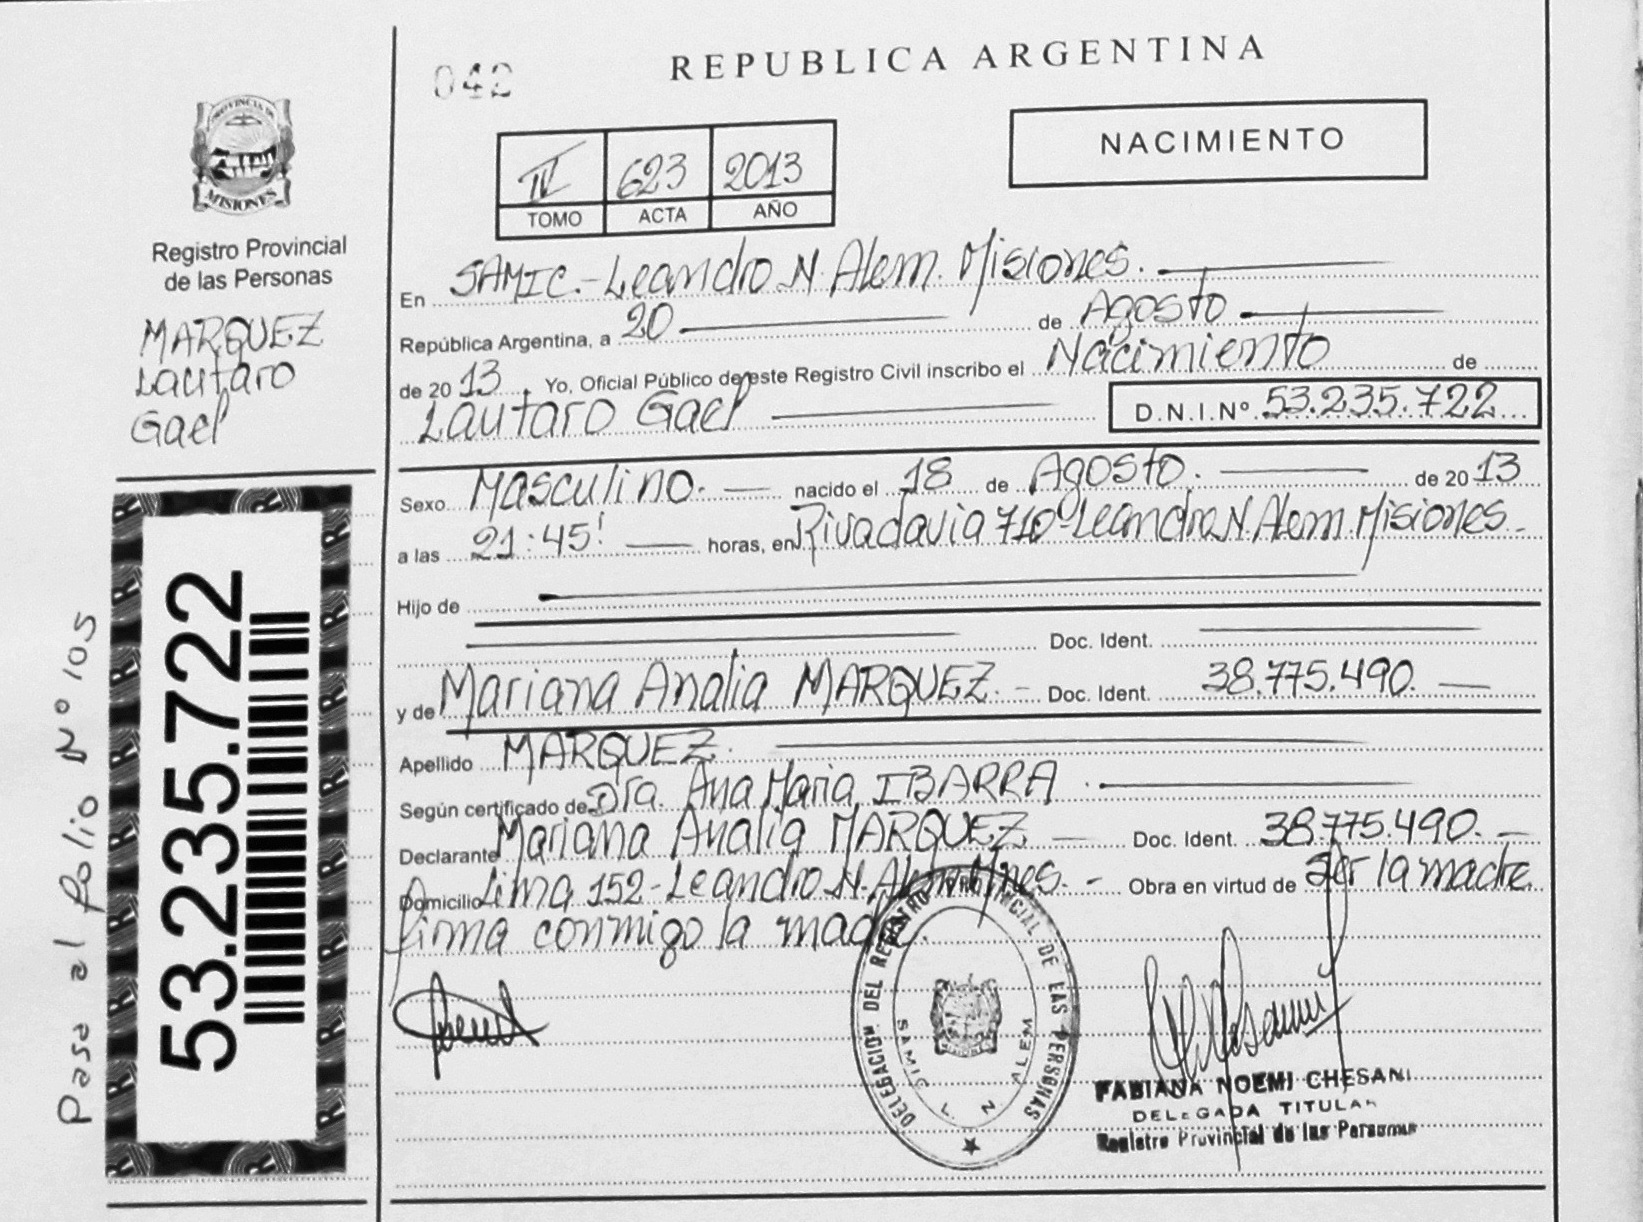 042
REPUBLICA ARGENTINA
NACIMIENTO
IV 623 2013
TOMO ACTA AÑO
PROVINCIA DE
MISIONES
Registro Provincial
de las Personas
MARQUEZ
Lautaro
Gael
53.235.722
Pasa al folio Nº 105
En SAMIC.-Leandro N. Alem. Misiones.
República Argentina, a 20 de Agosto
de 2013. Yo, Oficial Público de este Registro Civil inscribo el Nacimiento de
Lautaro Gael D.N.I.Nº 53.235.722
Sexo Masculino. nacido el 18 de Agosto. de 2013
a las 21:45' horas, en Rivadavia 710-Leandro N. Alem. Misiones.
Hijo de
Doc. Ident.
y de Mariana Analia MARQUEZ. - Doc. Ident. 38.775.490.
Apellido MARQUEZ.
Según certificado de Dra. Ana Maria IBARRA
Declarante Mariana Analia MARQUEZ Doc. Ident. 38.775.490.
Domicilio Lima 152-Leandro N. Alem. Mnes. - Obra en virtud de ser la madre
firma conmigo la madre.
DELEGACION DEL REGISTRO PROVINCIAL DE LAS PERSONAS
SAMIC L. N. ALEM
FABIANA NOEMI CHESANI
DELEGADA TITULAR
Registro Provincial de las Personas